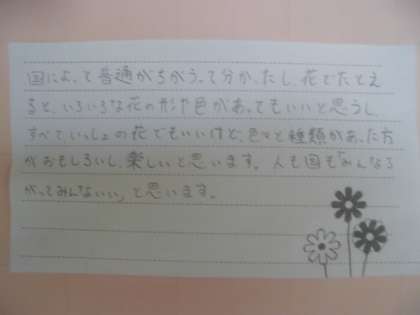 国によって普通がちがうって分かったし、花でたとえ
ると、いろいろな花の形や色があってもいいと思うし、
すべていっしょの花でもいいけど、色々と種類があった方
がおもしろいし、楽しいと思います。人も国もみんなち
がってみんないい」と思います。